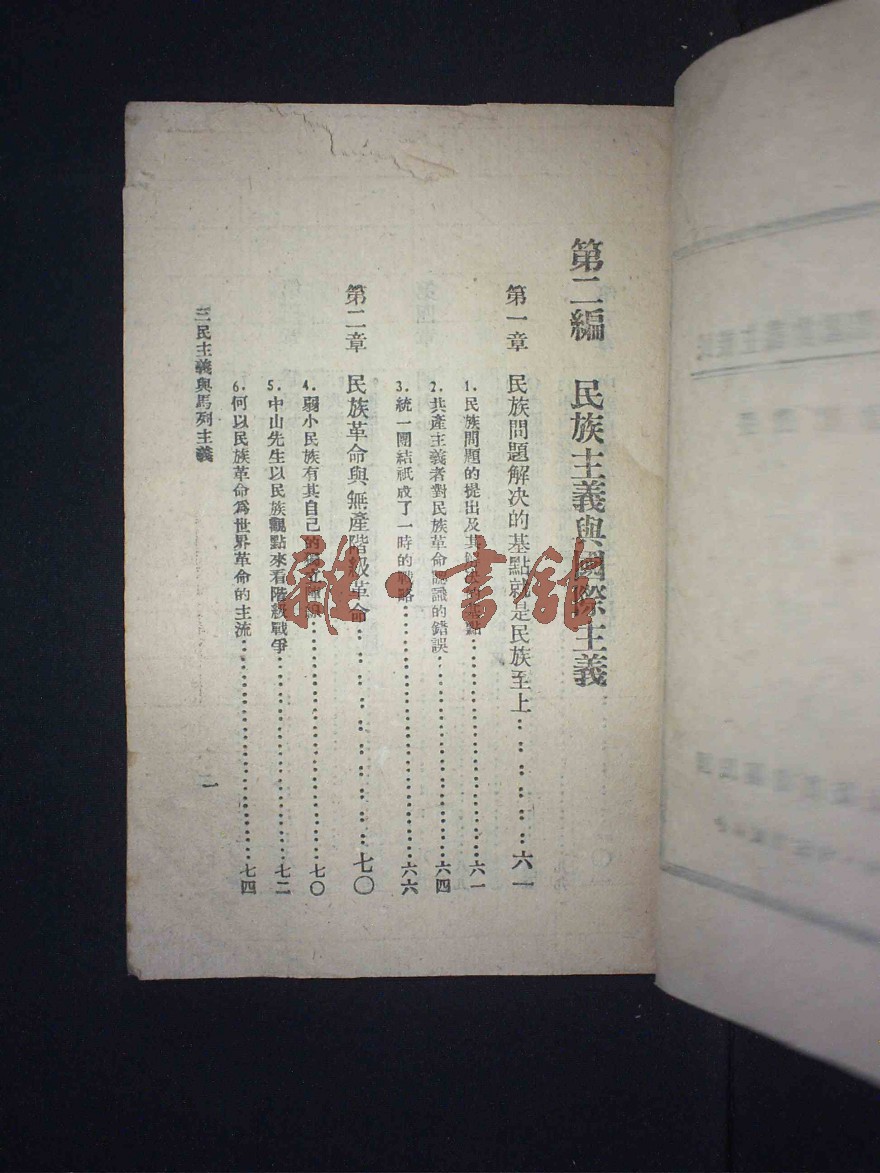 第二編　民族主義與國際主義
第一章　民族問題解决的基點就是民族至上…………六一
1．民族問題的提出及其解决的基點…………六一
2．共產主義者對民族革命認識的錯誤…………六四
3．統一團結祇成了一時的戰略…………六六
第二章　民族革命與無產階級革命…………七〇
4．弱小民族有其自己的獨立陣線…………七〇
5．中山先生以民族觀點來看階級戰爭…………七二
6．何以民族革命爲世界革命的主流…………七四
三民主義與馬列主義
二
雜·書館